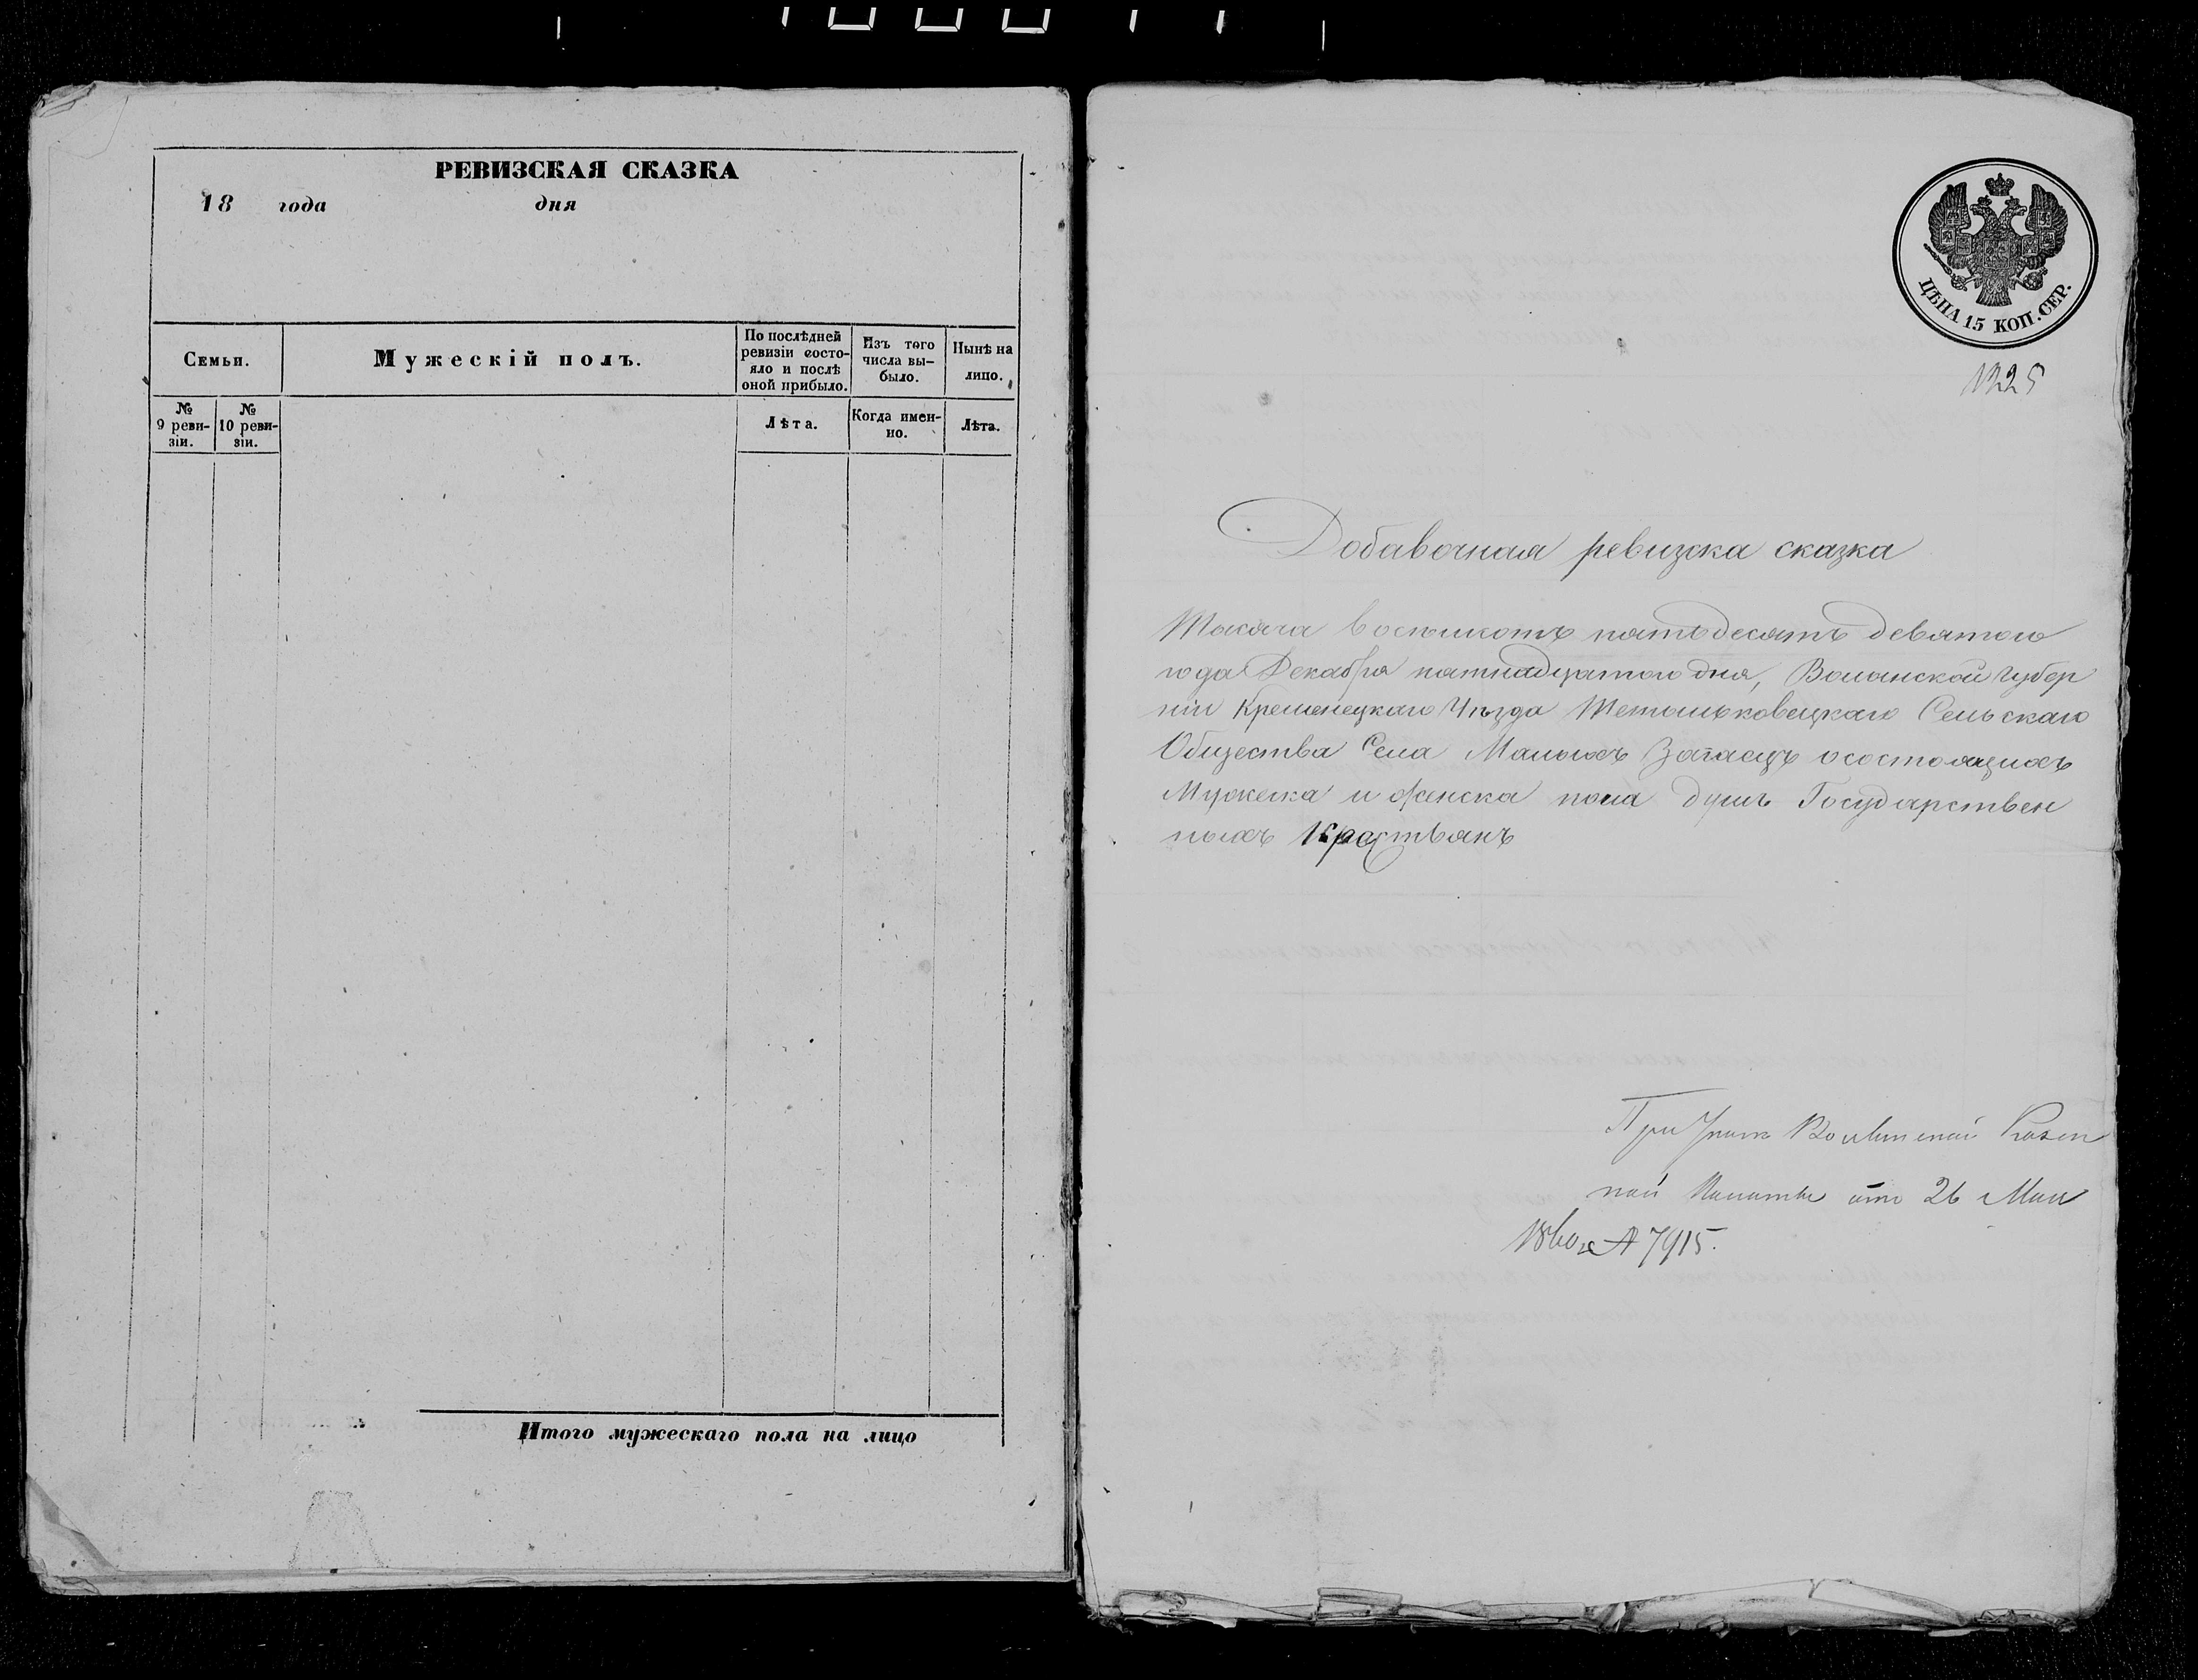 РЕВИЗСКАЯ СКАЗКА
18 года дня
Семьи.
Мужескій полъ.
По послѣдней ревизіи состо-
яло и послѣ
оной прибыло.
Изъ того
числа вы-
было.
Нынѣ на
лицо.
№
9 реви-
зіи.
№
10 реви-
зіи.
Лѣта.
Когда имен-
но.
Лѣта.
Итого мужескаго пола на лицо
ЦѢНА 15 КОП. СЕР.
1325
Добавочная ревизска сказка
Тысяча восемьсотъ пятьдесятъ девятого
года Декабря пятнадцатого дня, Волынской Губер
ніи Кременецкаго Уѣзда Тетыльковецкаго Сельскаго
Общества Села Малыхъ Загаецъ о состоящихъ
Мужеска и женска пола душъ Государствен
ныхъ Крестьянъ
При Указѣ Волынской Казен
ной Палаты отъ 26 Мая
1860 г № 7915.